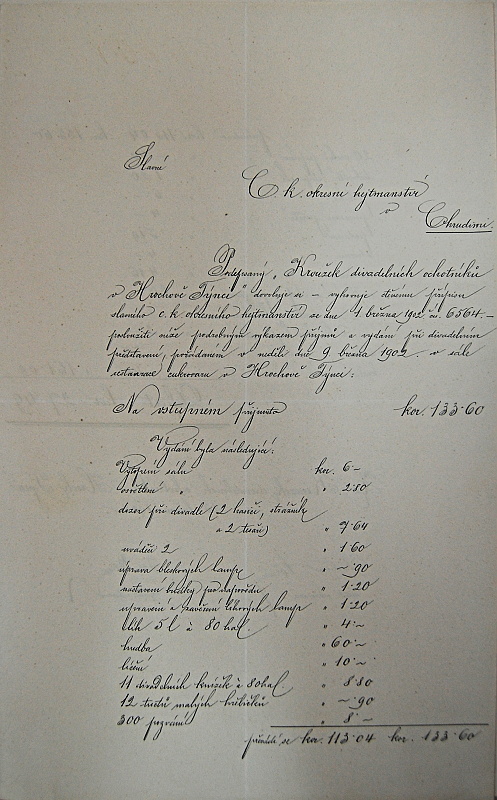 Slavné
C. k. okresní hejtmanství
v
Chrudimi.
Podepsaný „Kroužek divadelních ochotníků
v Hrochově Týnci" dovoluje si – vyhovuje ctěnému přípisu
slavného c. k. okresního hejtmanství ze dne 1. března 1902 čís. 6564. –
posloužiti níže podrobným výkazem příjmů a vydání při divadelním
představení, pořádaném v neděli dne 9. března 1902. v sále
restaurace cukrovaru v Hrochově Týnci:
Na vstupném přijato kor. 133·60
Vydání byla následující:
Vytopení sálu kor. 6·–
osvětlení „ „ 2·80
dozor při divadle (2 hasiči, strážník
a 2 tesaři) „ 7·64
uváděči 2 „ 1·60
úprava bleskových lampe „ –·90
nastavení budky pro nápovědu „ 1·20
upravení a zavěšení lihových lamp „ 1·20
líh 5 l à 80 hal. „ 4·–
hudba „ 60·–
líčení „ 10·–
11 divadelních knížek à 80 hal. „ 8·80
12 tuctů malých hřebíčků „ –·90
300 pozvání „ 8·–
převádí se kor. 113·04 kor. 133·60